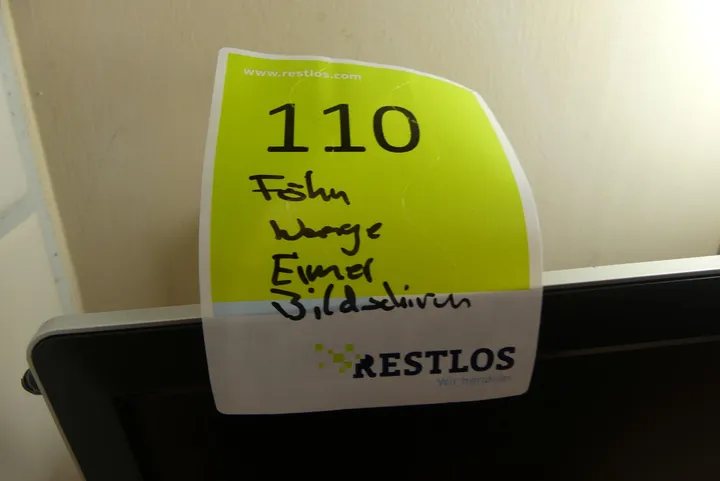 www.restlos.com
110
Föhn
Waage
Eimer
Bildschirm
RESTLOS